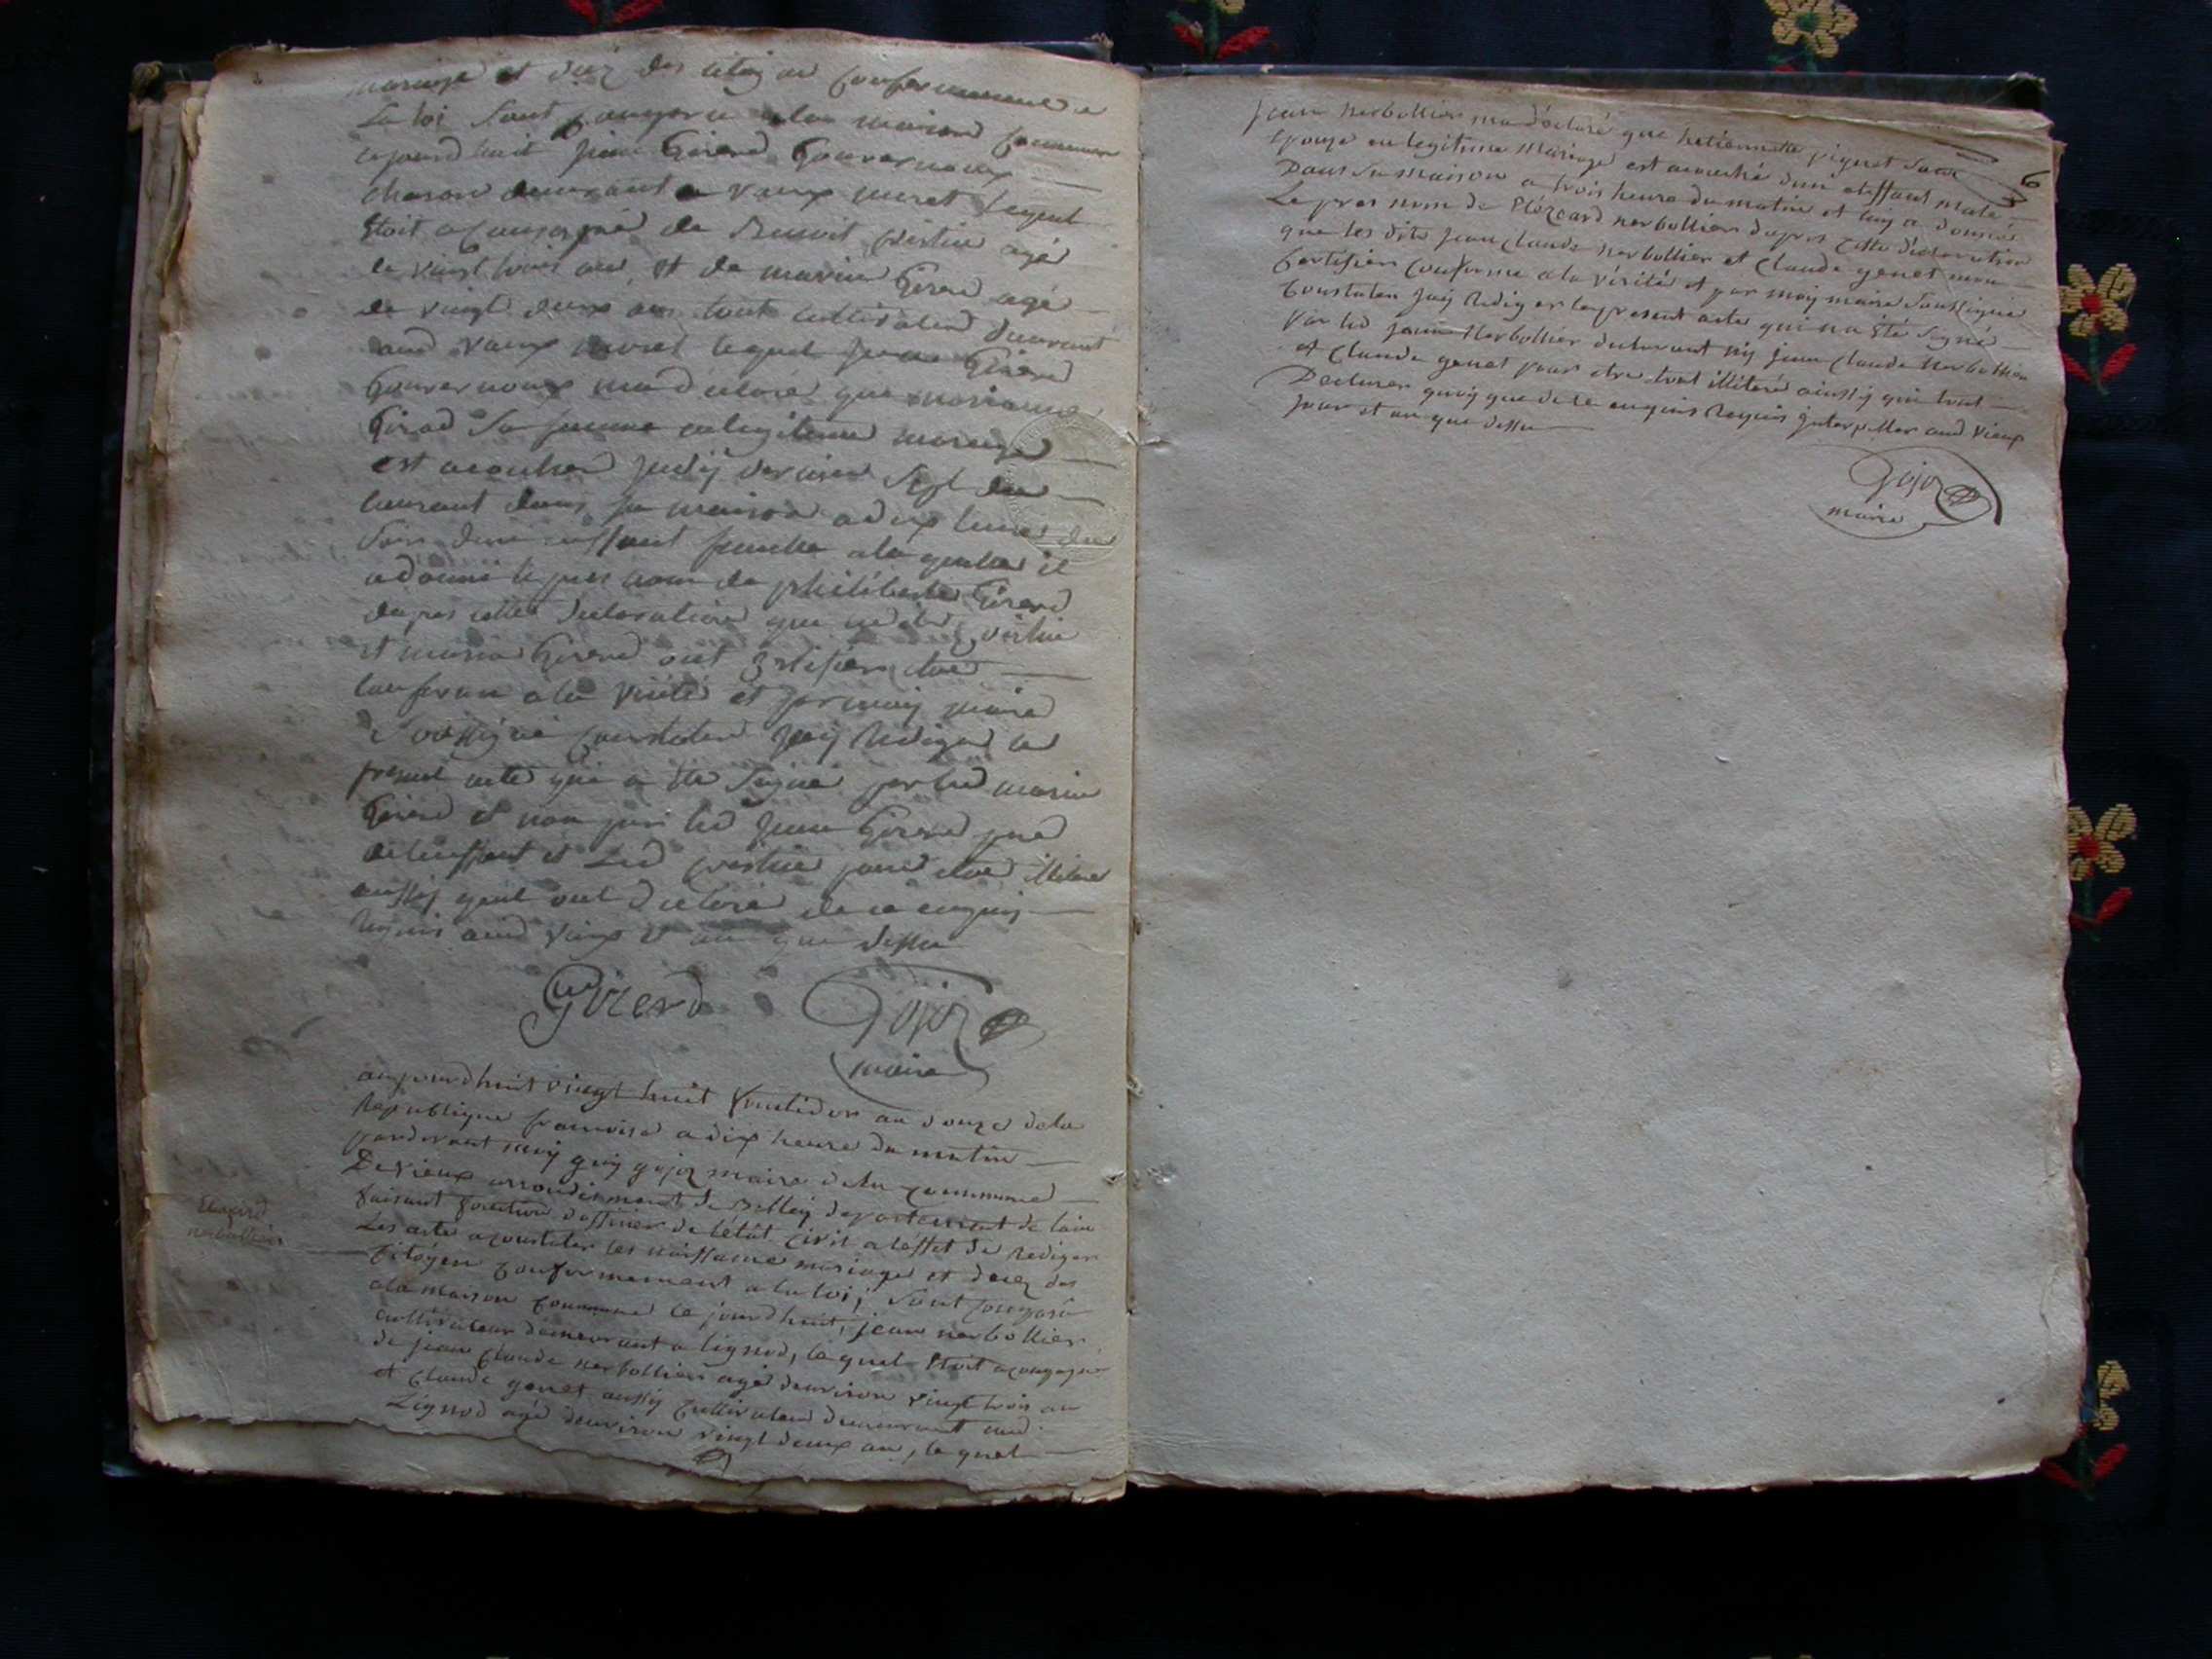 mariage et decez des citoyen conformement a
La loi sont comparu a la maison commune
cejourdhuit jean Girerd Gouvernoux
charon demeurant a vaux muret lequel
Etoit acompagné de Benoit agé
de vingt trois ans, et de marin Girerd agé
de vingt deux ans tout cultivateur demeurant
aud vaux muret lequel jean Girerd
Gouvernoux ma déclaré que marianne
Girod Sa femme en legitime mariage
est acouchée judÿ dernier Sept du
courant dans sa maison a deux heures du
Soir dun enffant femelle a la quelle il
a donné le pres nom de philiberte Girerd
dapres cette declaration que
et marin Girerd ont certifier etre
conforme a la vérité et par moÿ maire
Soussigné constater jaÿ rediger le
present acte qui a été Signé par led marin
Girerd et non par led jean Girerd pere
de lenffant et Led pour etre illiteré
aussÿ quil ont declaré de ce enquis
requis aud vieux et an que dessu
Girerd Gojoz
maire
aujourdhuit vingt huit fructidor an douze dela
Republique francoise a dix heure du matin
pardevant moÿ guÿ gojoz maire dela commune
De vieux arrondissement de Belleÿ departement de lain
faisant fonction doffisier de létat civil a leffet de rediger
Les acte a constater les naissance mariage et decez des
Citoyen conformement a la loi, sont comparu
a la maison commune ce jourdhuit, jean nerbollier
cultivateur demeurant a lignod, lequel Etoit acompagné
de jean claude nerbollier agé denviron vingt trois an
et Claude genet aussÿ cultivateur demeurant aud
Lignod agé denviron vingt deux an, le quel
nerbollier
6
jean nerbollier ma déclaré que hetiennette piguet Son
Epouse en legitime Mariage est acouché dun enffant male
Dans Sa maison a trois heure du matin et luÿ a donné
Le pres nom de Elézeard nerbollier dapres cette déclaration
que les dits jean claude nerbollier et Claude genet mon
Certifier conforme a la vérité et par moÿ maire Soussigné
Constater jaÿ Rediger le present acte qui na été Signé
Par led jean Nerbollier declarant nÿ jean claude Nerbollier
et Claude genet pour etre tout illiteré ainssÿ quil lont
Declarer quoÿ que de ce enquis Requis interpeller aud vieux
jour et an que dessu
Gojoz
maire